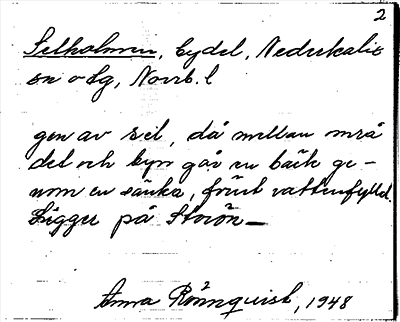 2
Selholmen, bydel, Nederkalix
sn o lg, Norrb. l
gen av sel, då mellan områ
det och byn går en bäck ge-
nom en sänka, förut vattenfylld.
Ligger på Storön —
Anna Rönnquist, 1948